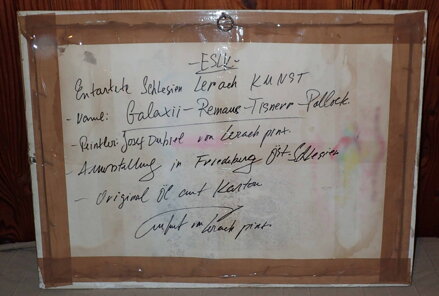 -ESLK-
Entartete Schlesien Lerach KUNST
- Name: Galaxii - Remaus - Tisnerr - Pollock.
- Peintler: Josef Dubiel von Lerach pinx.
Ausstallung in Friedeburg Öst-Schlesien
- Original Öl auf Karton
von Lerach pinx.